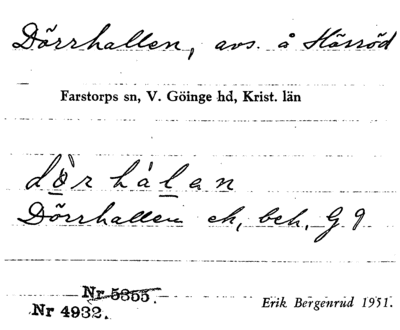 Dörrhallen, avs. å Hörröd
Farstorps sn, V. Göinge hd, Krist. län
dö̀rhálan
Dörrhallen ek, beh, G 9
Nr 5355.
Nr 4932.
Erik Bergenrud 1951.